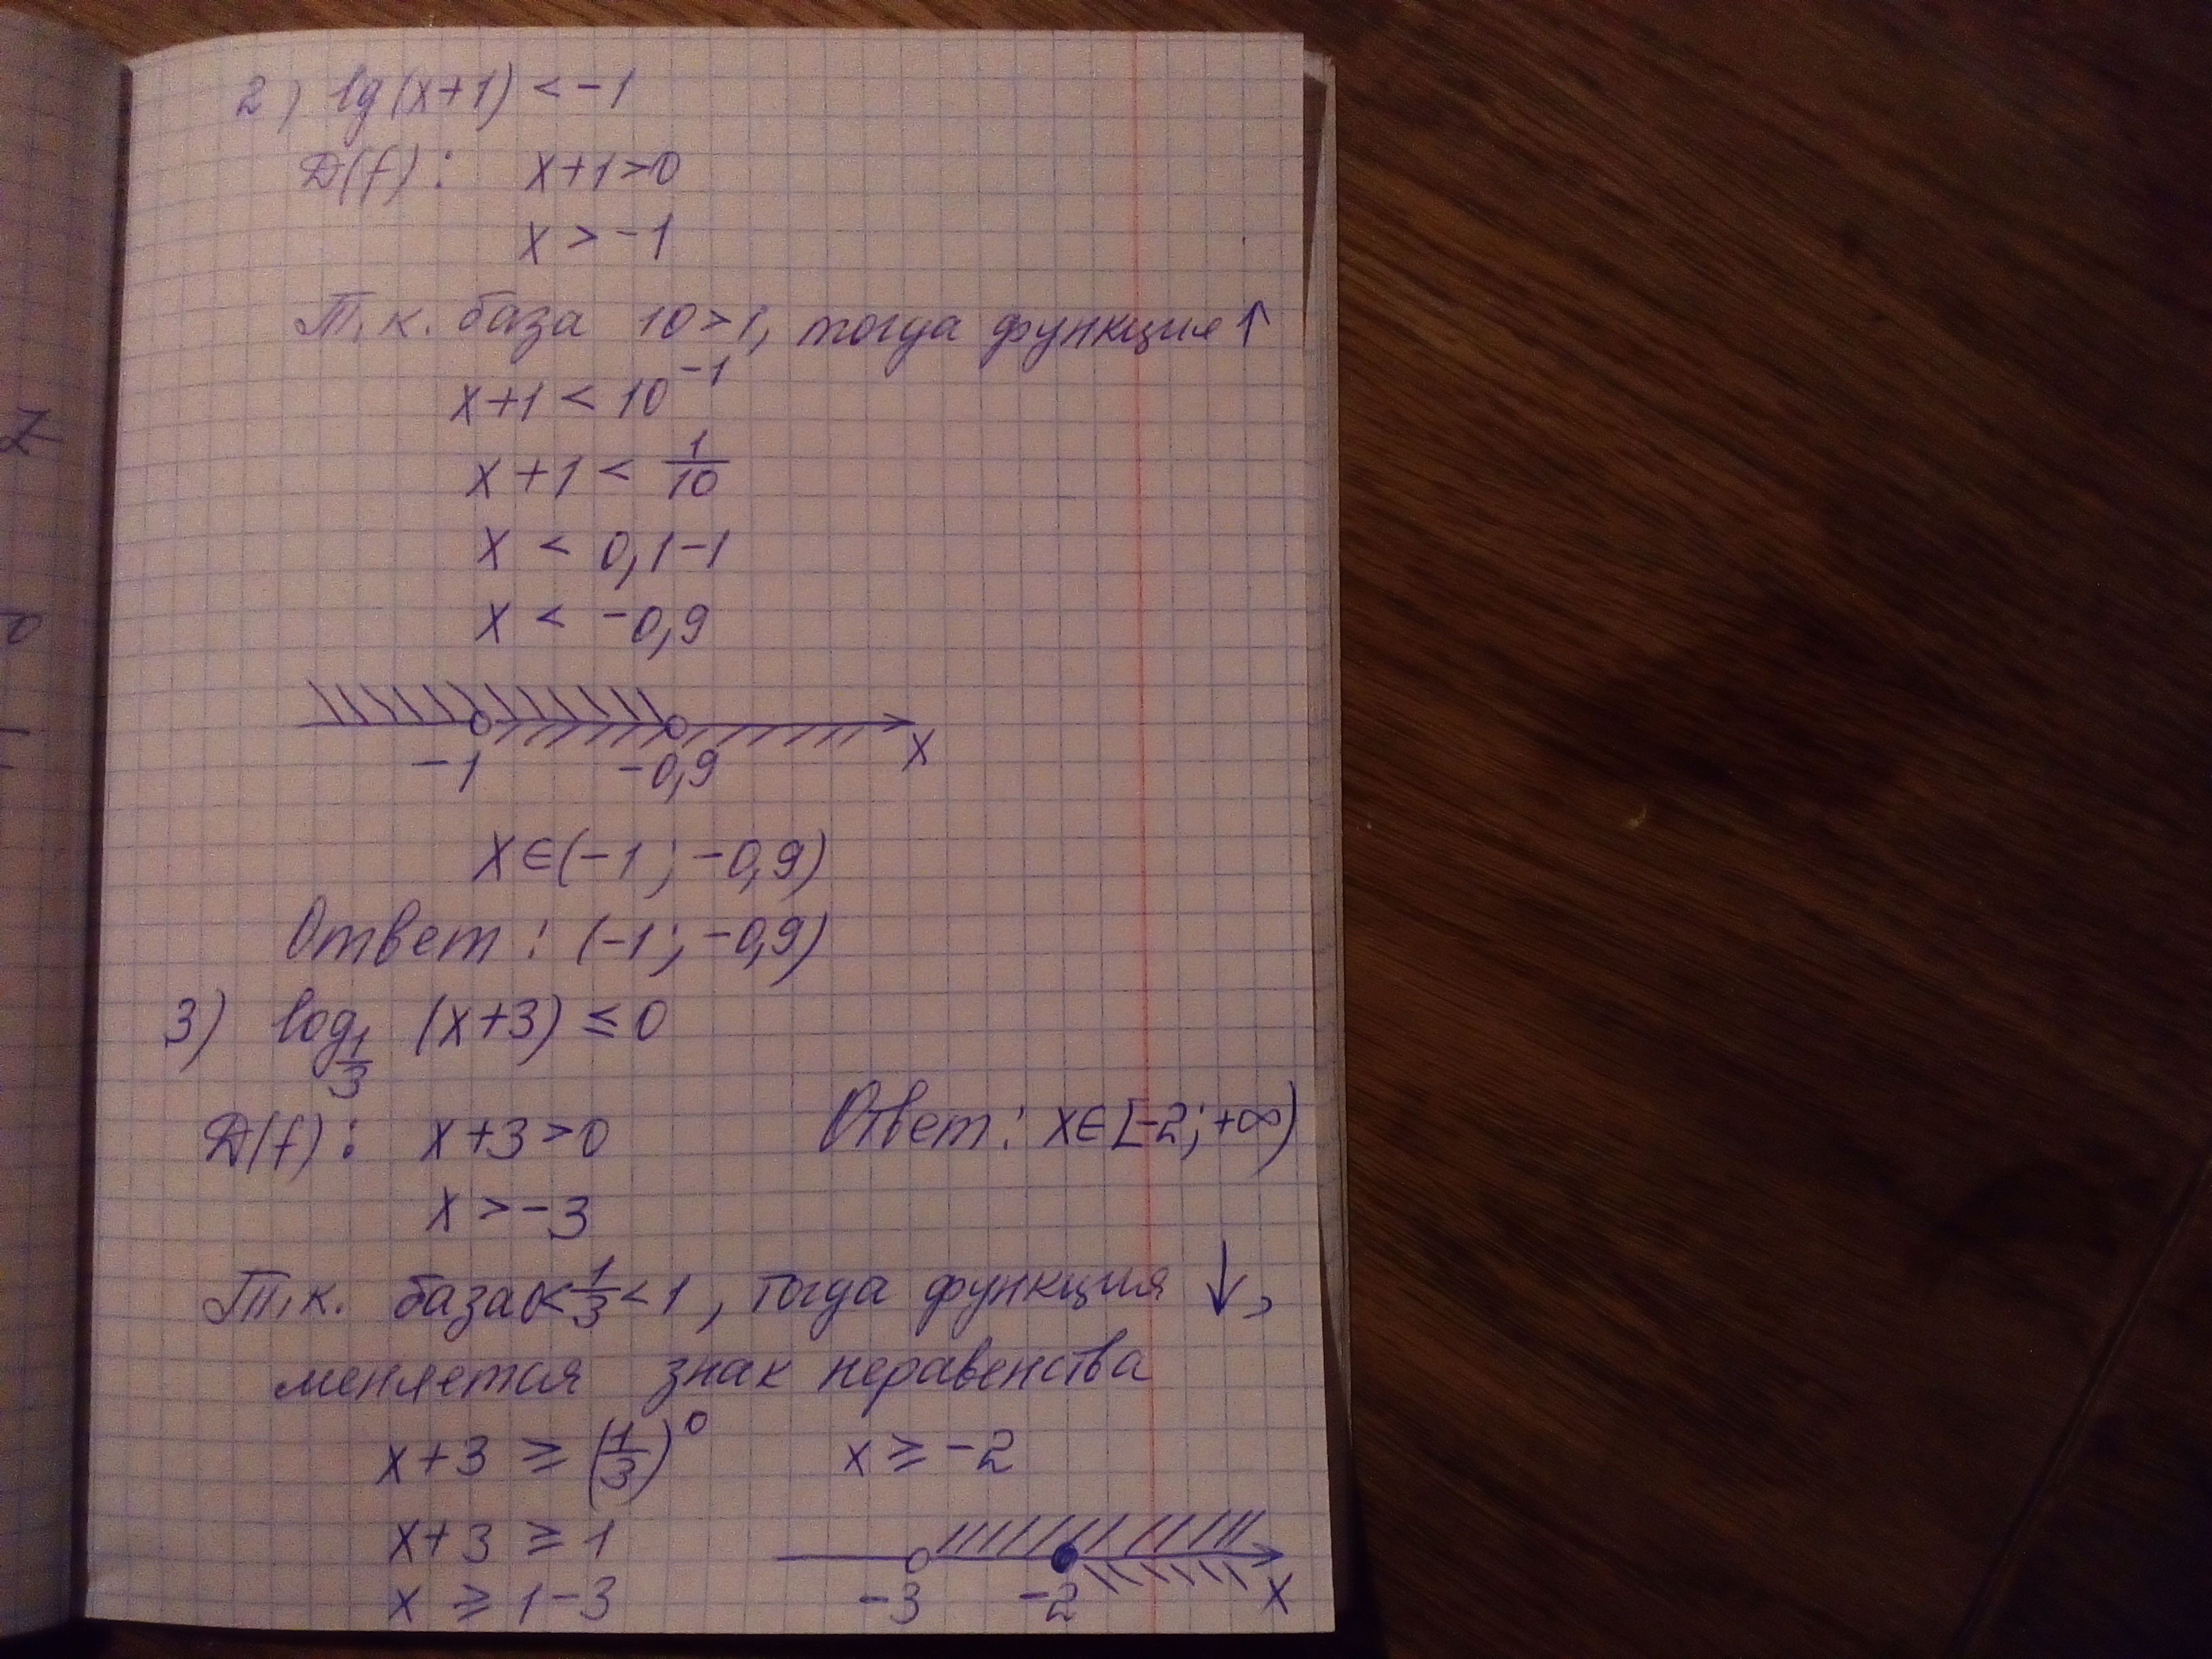 2) lg(x+1) < -1
D(f): x+1>0
x > -1
Т.к. база 10>1, тогда функция ↑
x+1 < 10⁻¹
x+1 < 1/10
x < 0,1-1
x < -0,9
-1 -0,9 x
x∈(-1; -0,9)
Ответ: (-1; -0,9)
3) log_{1/3} (x+3) ≤ 0
D(f): x+3>0
Ответ: x∈[-2;+∞)
x > -3
Т.к. база 0<1/3<1, тогда функция ↓,
меняется знак неравенства
x+3 ≥ (1/3)⁰ x ≥ -2
x+3 ≥ 1
x ≥ 1-3
-3 -2 x